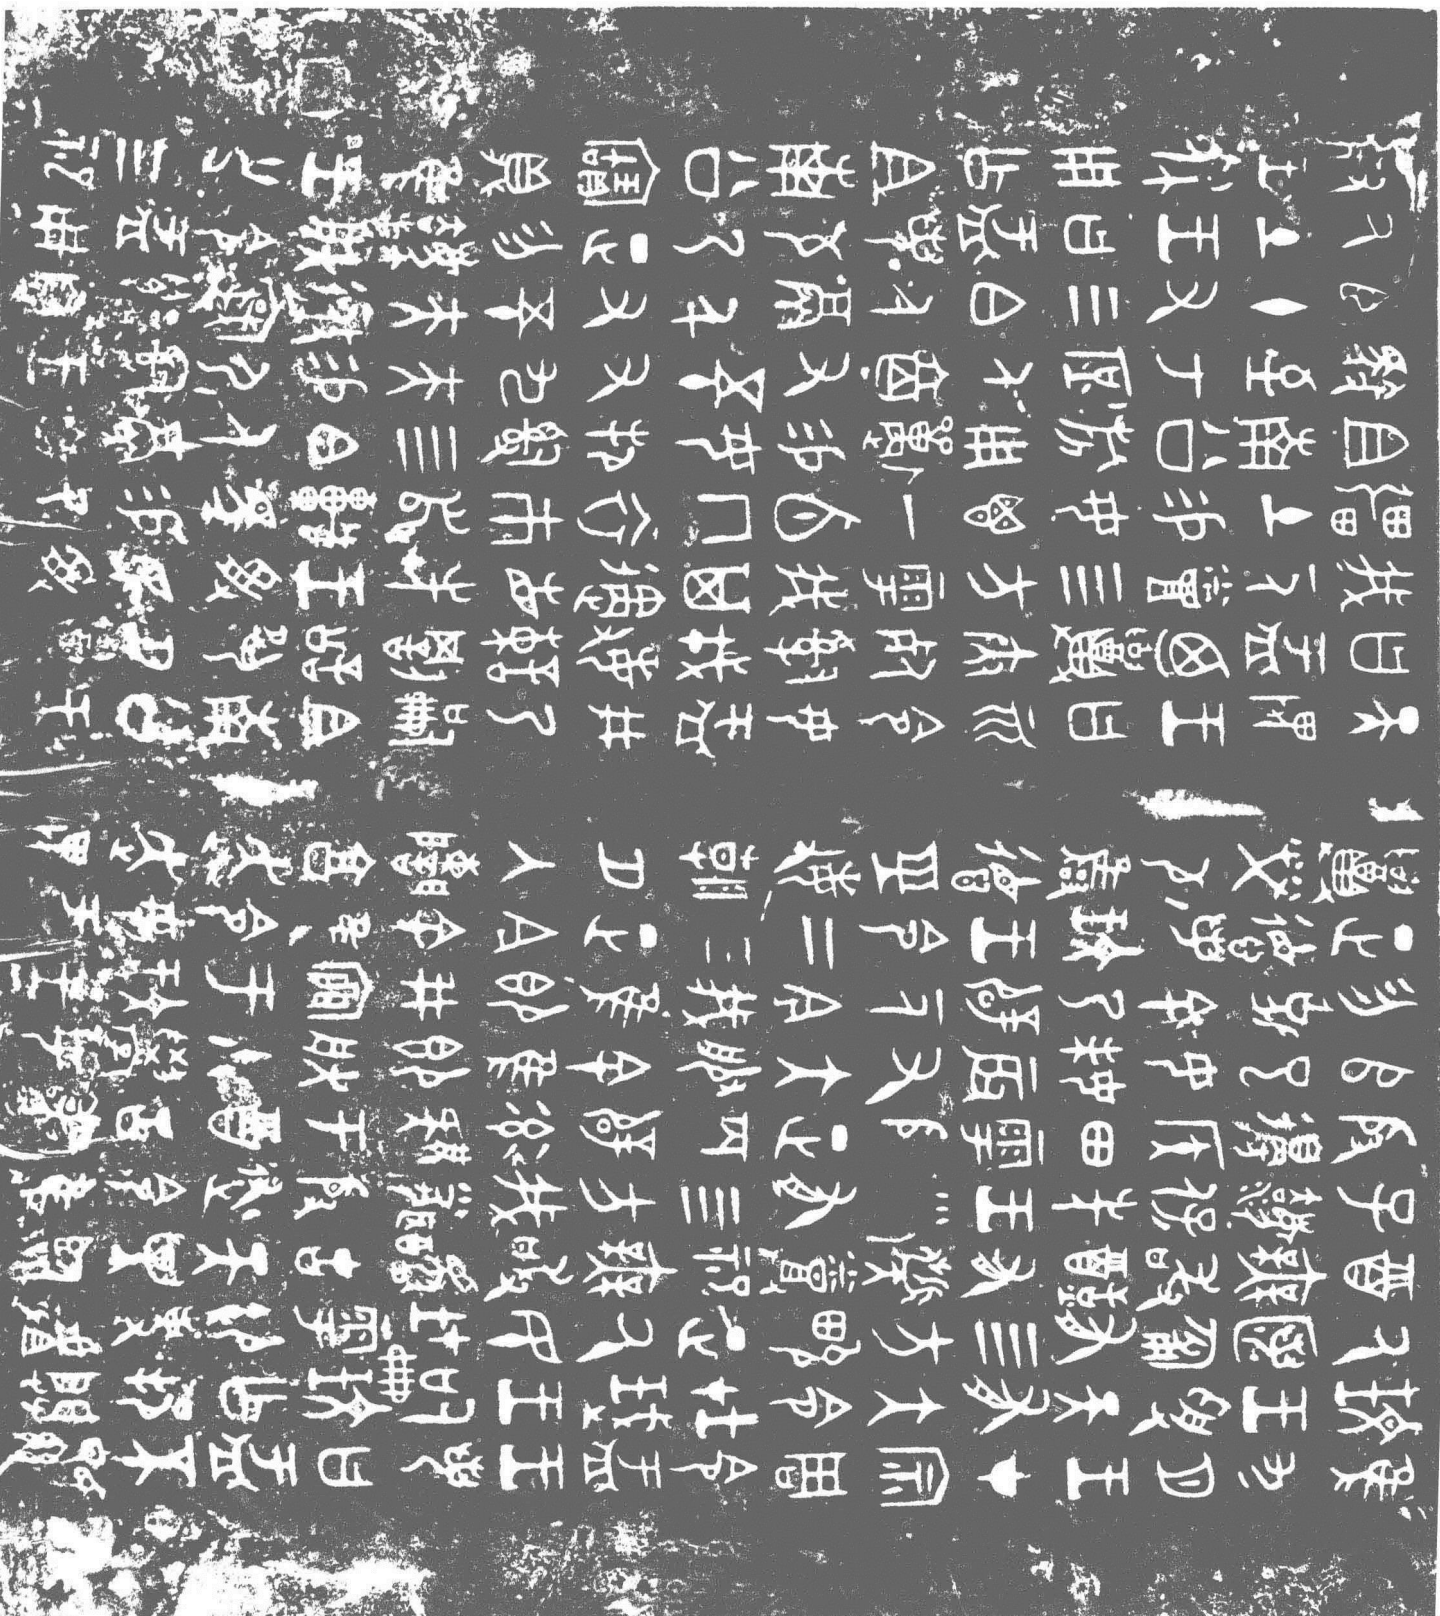 隹九月王才宗周令盂王若曰盂不顯
玟王受天有大令在珷王嗣玟乍邦闢
厥匿匍有四方畯正厥民在雩御事䖒
酉無敢酖有柴烝祀無敢擾古天異臨
子灋保先王□有四方我聞殷述令隹
殷邊侯田雩殷正百辟率肄于酉古喪
𠂤已女妹辰有大服余隹即朕小學女
勿克余乃辟一人今我隹即井稟于玟王
正德若玟王令二三正今余隹令女盂
召榮敬雝德巠敏朝夕入讕享奔走畏
天畏王曰而令女盂井乃嗣且南公王
曰盂乃召夾死司戎敏諫罰訟夙夕召
我一人烝四方雩我其遹省先王受民受
疆土易女鬯一卣冂衣巿舄車馬易乃
且南公旂用狩易女邦司四白人鬲自
馭至于庶人六百又五十又九夫易尸司王
臣十又三白人鬲千又五十夫
厥土王曰盂若敬乃正勿灋朕令盂用
對王休用乍且南公寶鼎隹王廿又三祀